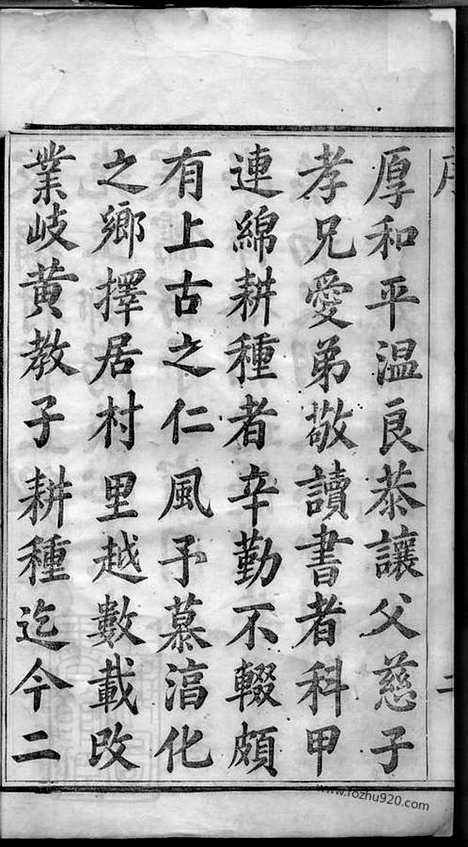 序
厚和平温良恭讓父慈子
孝兄愛弟敬讀書者科甲
連綿耕種者辛勤不輟頗
有上古之仁風予慕滈化
之鄉擇居村里越數載改
業岐黄教子耕種迄今二
www.rozhu920.com